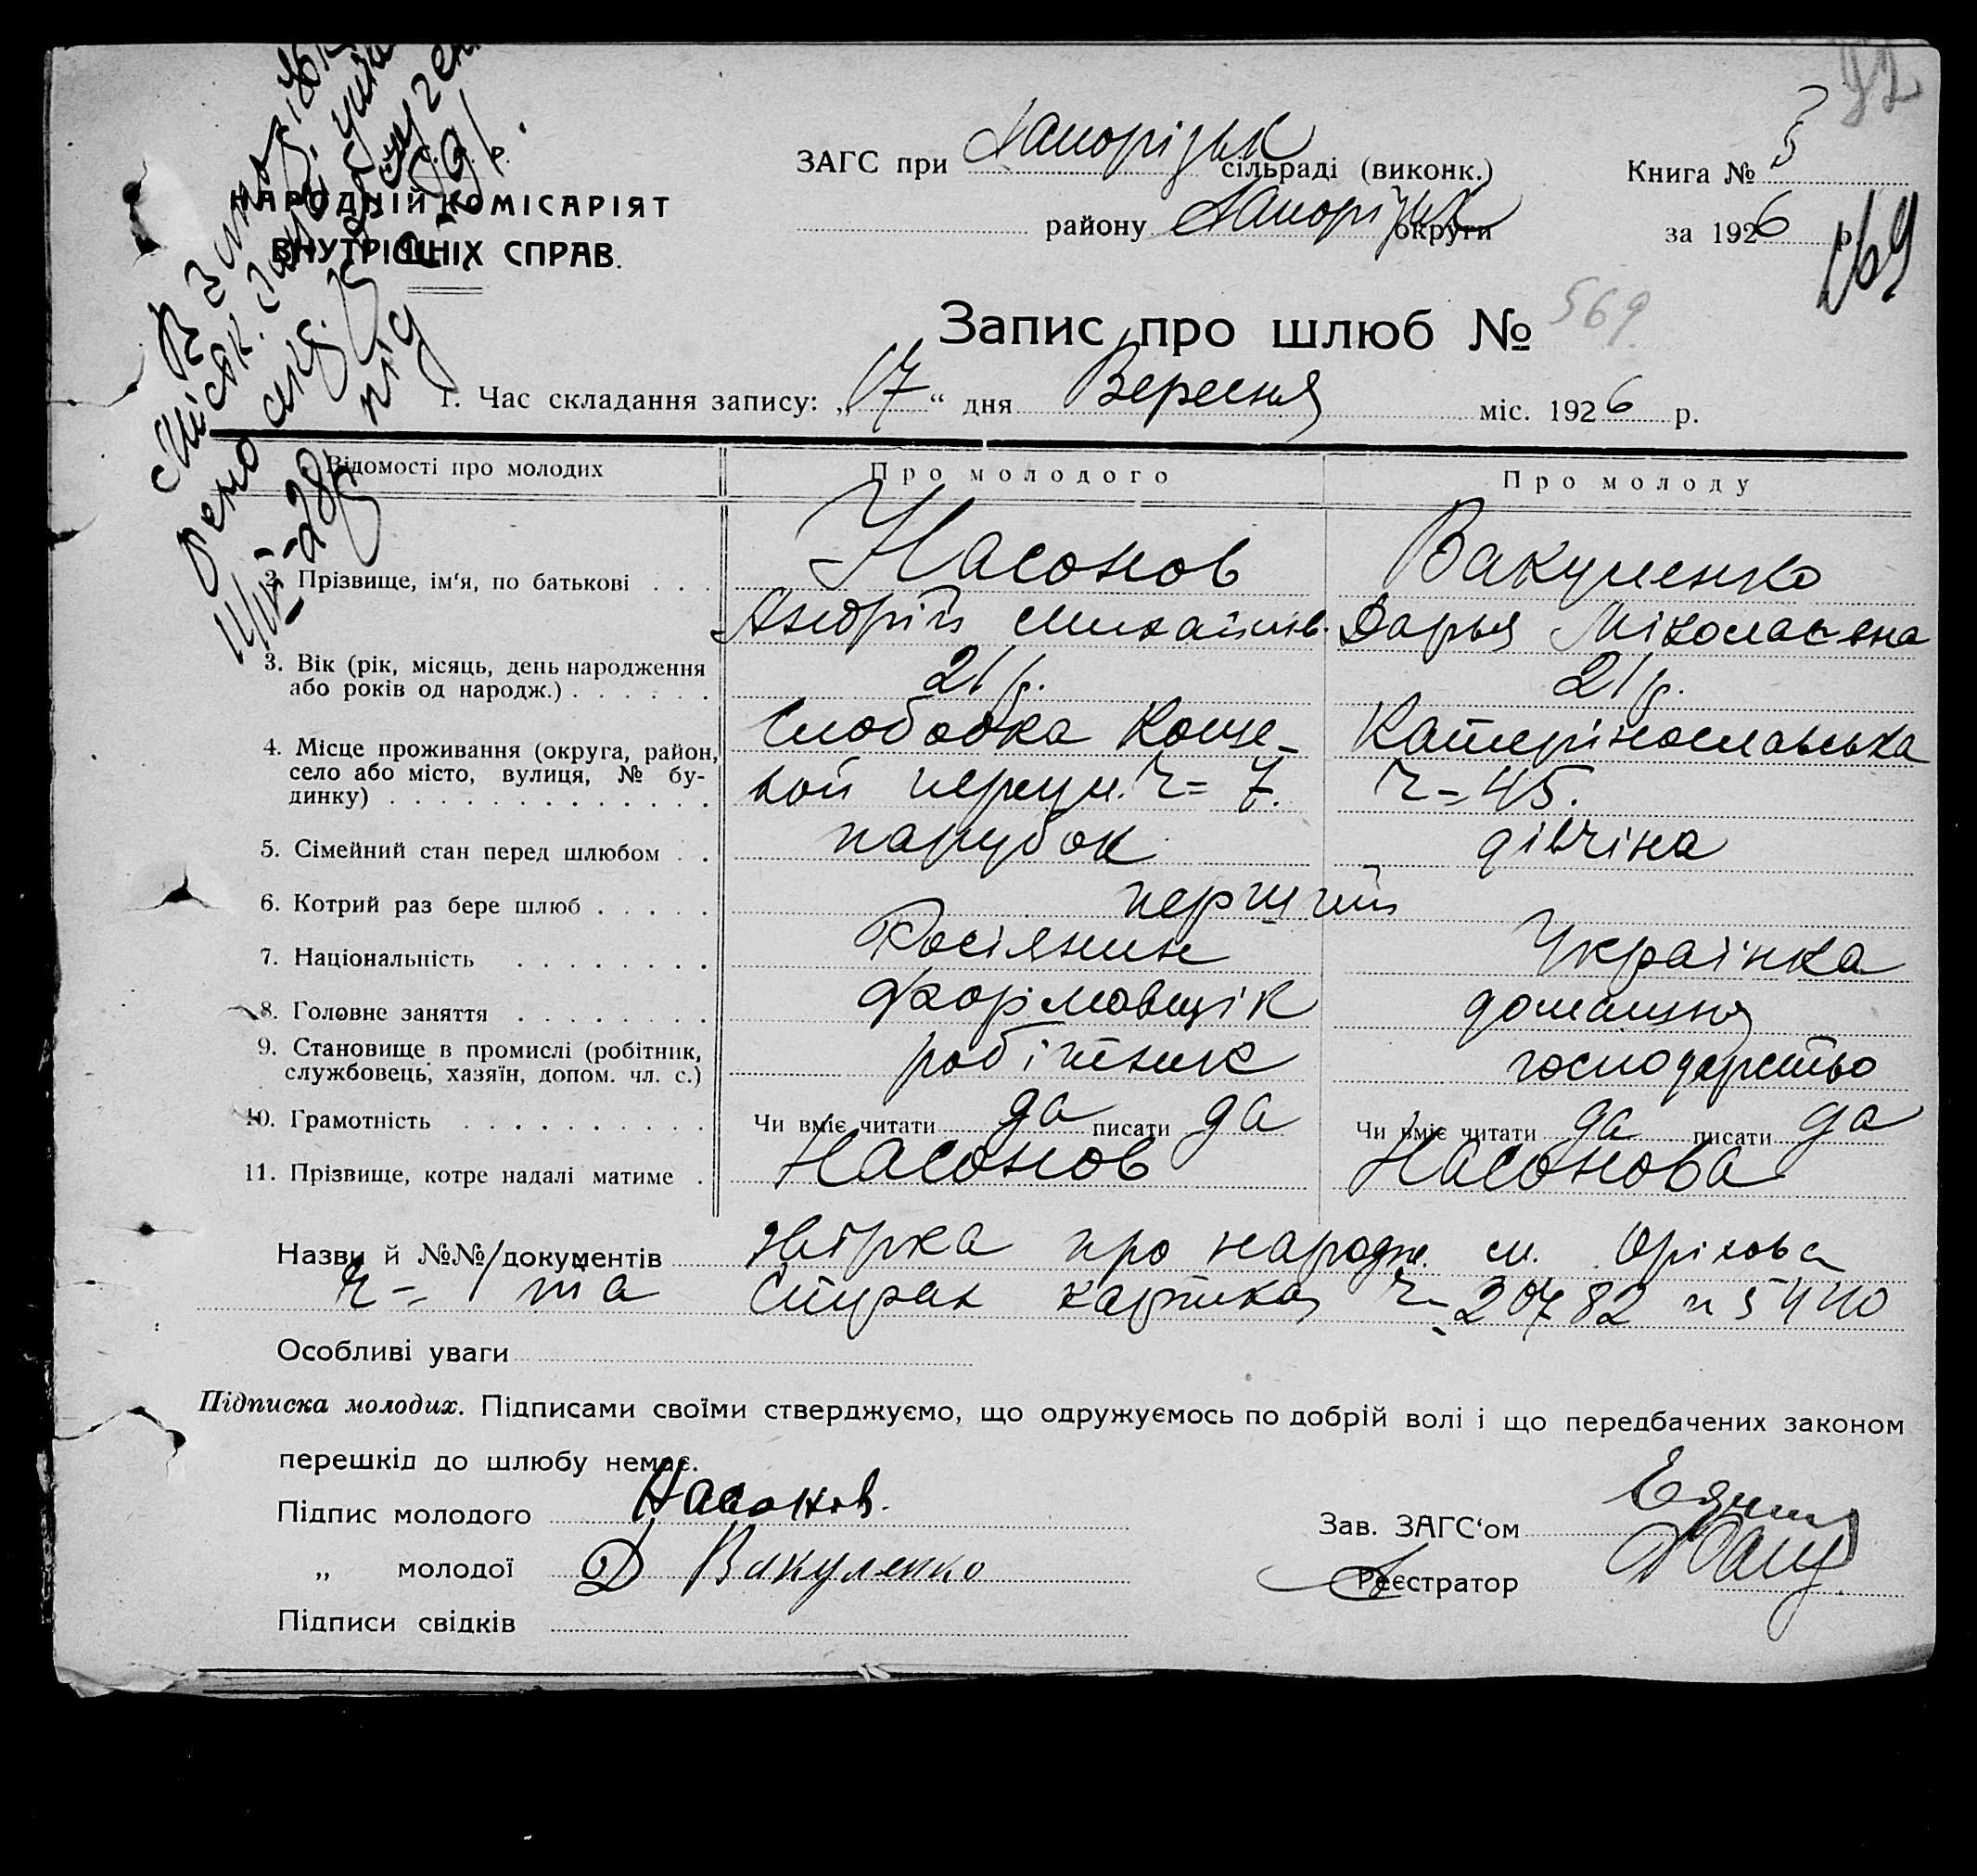 92
НАРОДНІЙ КОМІСАРІЯТ
ВНУТРІШНІХ СПРАВ.
ЗАГС при Запоріськ сільраді (виконк.)
району Запорізьк округи
Книга № 3
за 1926 р.
569
Запис про шлюб № 569
1. Час складання запису: „17“ дня Вересня міс. 1926 р.
Відомості про молодих Про молодого Про молоду
2. Прізвище, ім'я, по батькові . . . Насонов Вакуленко
Андрій Михайлів. Дарья Міколаєвна
3. Вік (рік, місяць, день народження 21 р. 21 р.
або років од народж.) . . . . . .
4. Місце проживання (округа, район, Слободка Коще- Катерінославська
село або місто, вулиця, № бу- вой переул. Ч= 7. Ч= 45.
динку) . . . . . . . . . . . . .
5. Сімейний стан перед шлюбом . . парубок дівчіна
6. Котрий раз бере шлюб . . . . . перший
7. Національність . . . . . . . . Росіянин Українка
8. Головне заняття . . . . . . . . Формовщік домашня
9. Становище в промислі (робітник, робітник господарство
службовець, хазяїн, допом. чл. с.)
10. Грамотність . . . . . . . . . . Чи вміє читати да писати да Чи вміє читати да писати да
11. Прізвище, котре надалі матиме . Насонов Насонова
Назви й №№ документів про народж. м. Оріхова
Ч= 1 та Страх картка Ч= 20782 и 5440
Особливі уваги
Підписка молодих. Підписами своїми стверджуємо, що одружуємось по добрій волі і що передбачених законом
перешкід до шлюбу немає.
Підпис молодого Насонов.
„ молодої Д Вакуленко
Підписи свідків
Зав. ЗАГС‘ом
Реєстратор